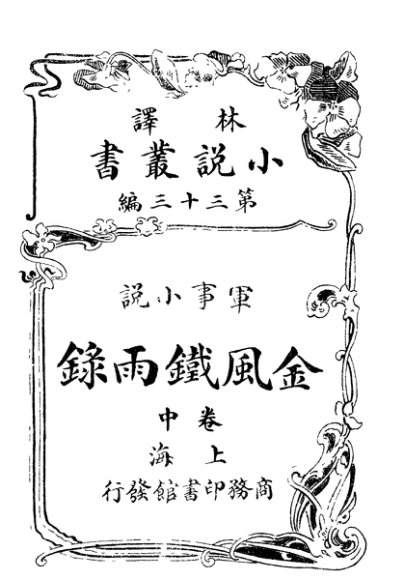 林譯
小說叢書
第三十三編
軍事小說
金風鐵雨錄
卷中
上海
商務印書館發行